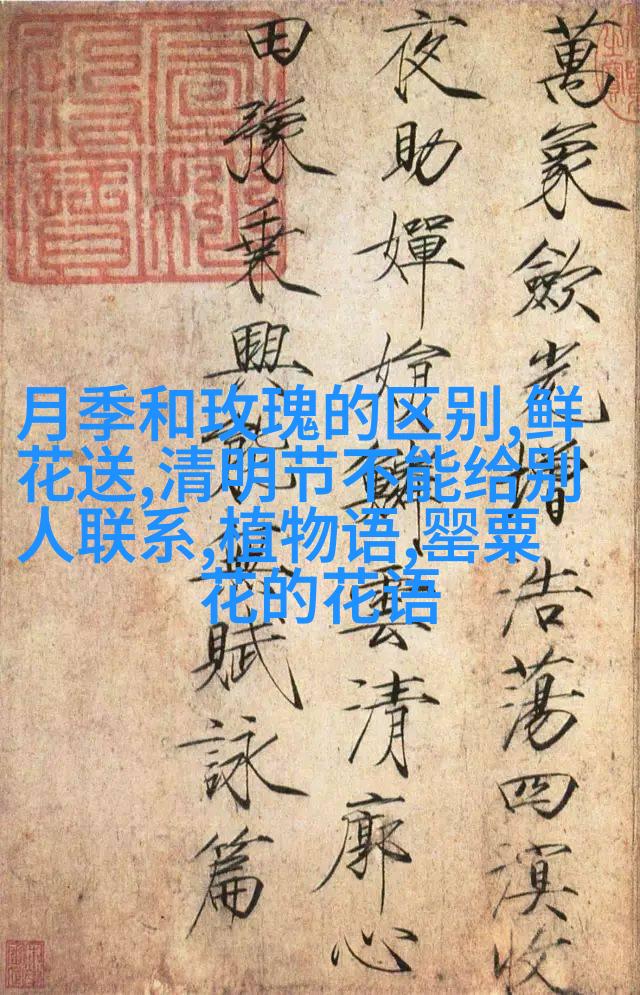 萬象歛光增浩蕩四溟收
夜助嬋娟鱗雲清廓心
田豫乗興能無賦詠篇
月季和玫瑰的区别,鲜
花送,清明节不能给别
人联系,植物语,罂粟
花的花语